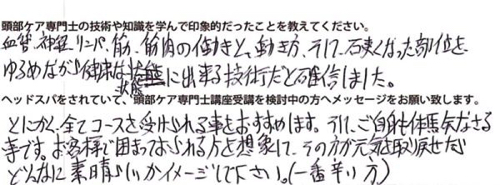 頭部ケア専門士の技術や知識を学んで印象的だったことを教えてください。
血管、神経、リンパ、筋、筋肉の働きと、動き方、そして、石更くなった部位を
ゆるめながら健康な状態に出来る技術だと確信しました。
状態
ヘッドスパをされていて、頭部ケア専門士講座受講を検討中の方へメッセージをお願い致します。
とにかく、全てコースを受けられる事をおすすめします。そして、ご自身も体馬気なさる
事です。お客様で困まっておられる方を想象して、その方が元気を取り戻せたら
どんなに素晴らしいかイメージして下さい。(一番辛い方)